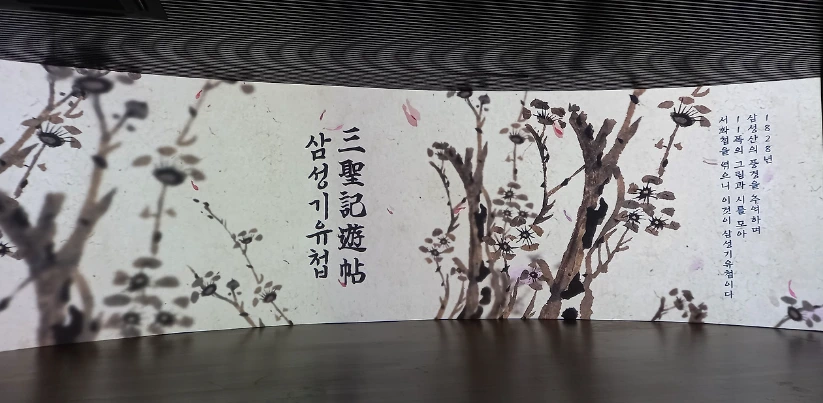 三聖記遊帖
삼성기유첩
1828년
삼성산의 풍경을 추억하며
11폭의 그림과 시를 모아
서화첩을 엮으니 이것이 삼성기유첩이다